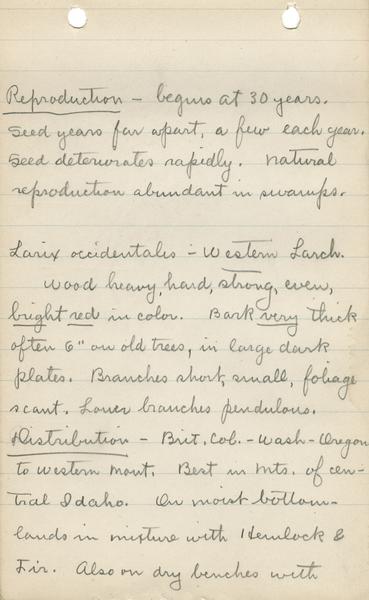 Reproduction – begins at 30 years.
Seed years far apart, a few each year.
Seed deteriorates rapidly. Natural
reproduction abundant in swamps.
Larix occidentalis – Western Larch.
Wood heavy, hard, strong, even,
bright red in color. Bark very thick
often 6" on old trees, in large dark
plates. Branches short, small, foliage
scant. Lower branches pendulous.
Distribution – Brit. Col. – Wash – Oregon
to western Mont. Best in Mts. of cen-
tral Idaho. On moist bottom-
lands in mixture with Hemlock &
Fir. Also on dry benches with